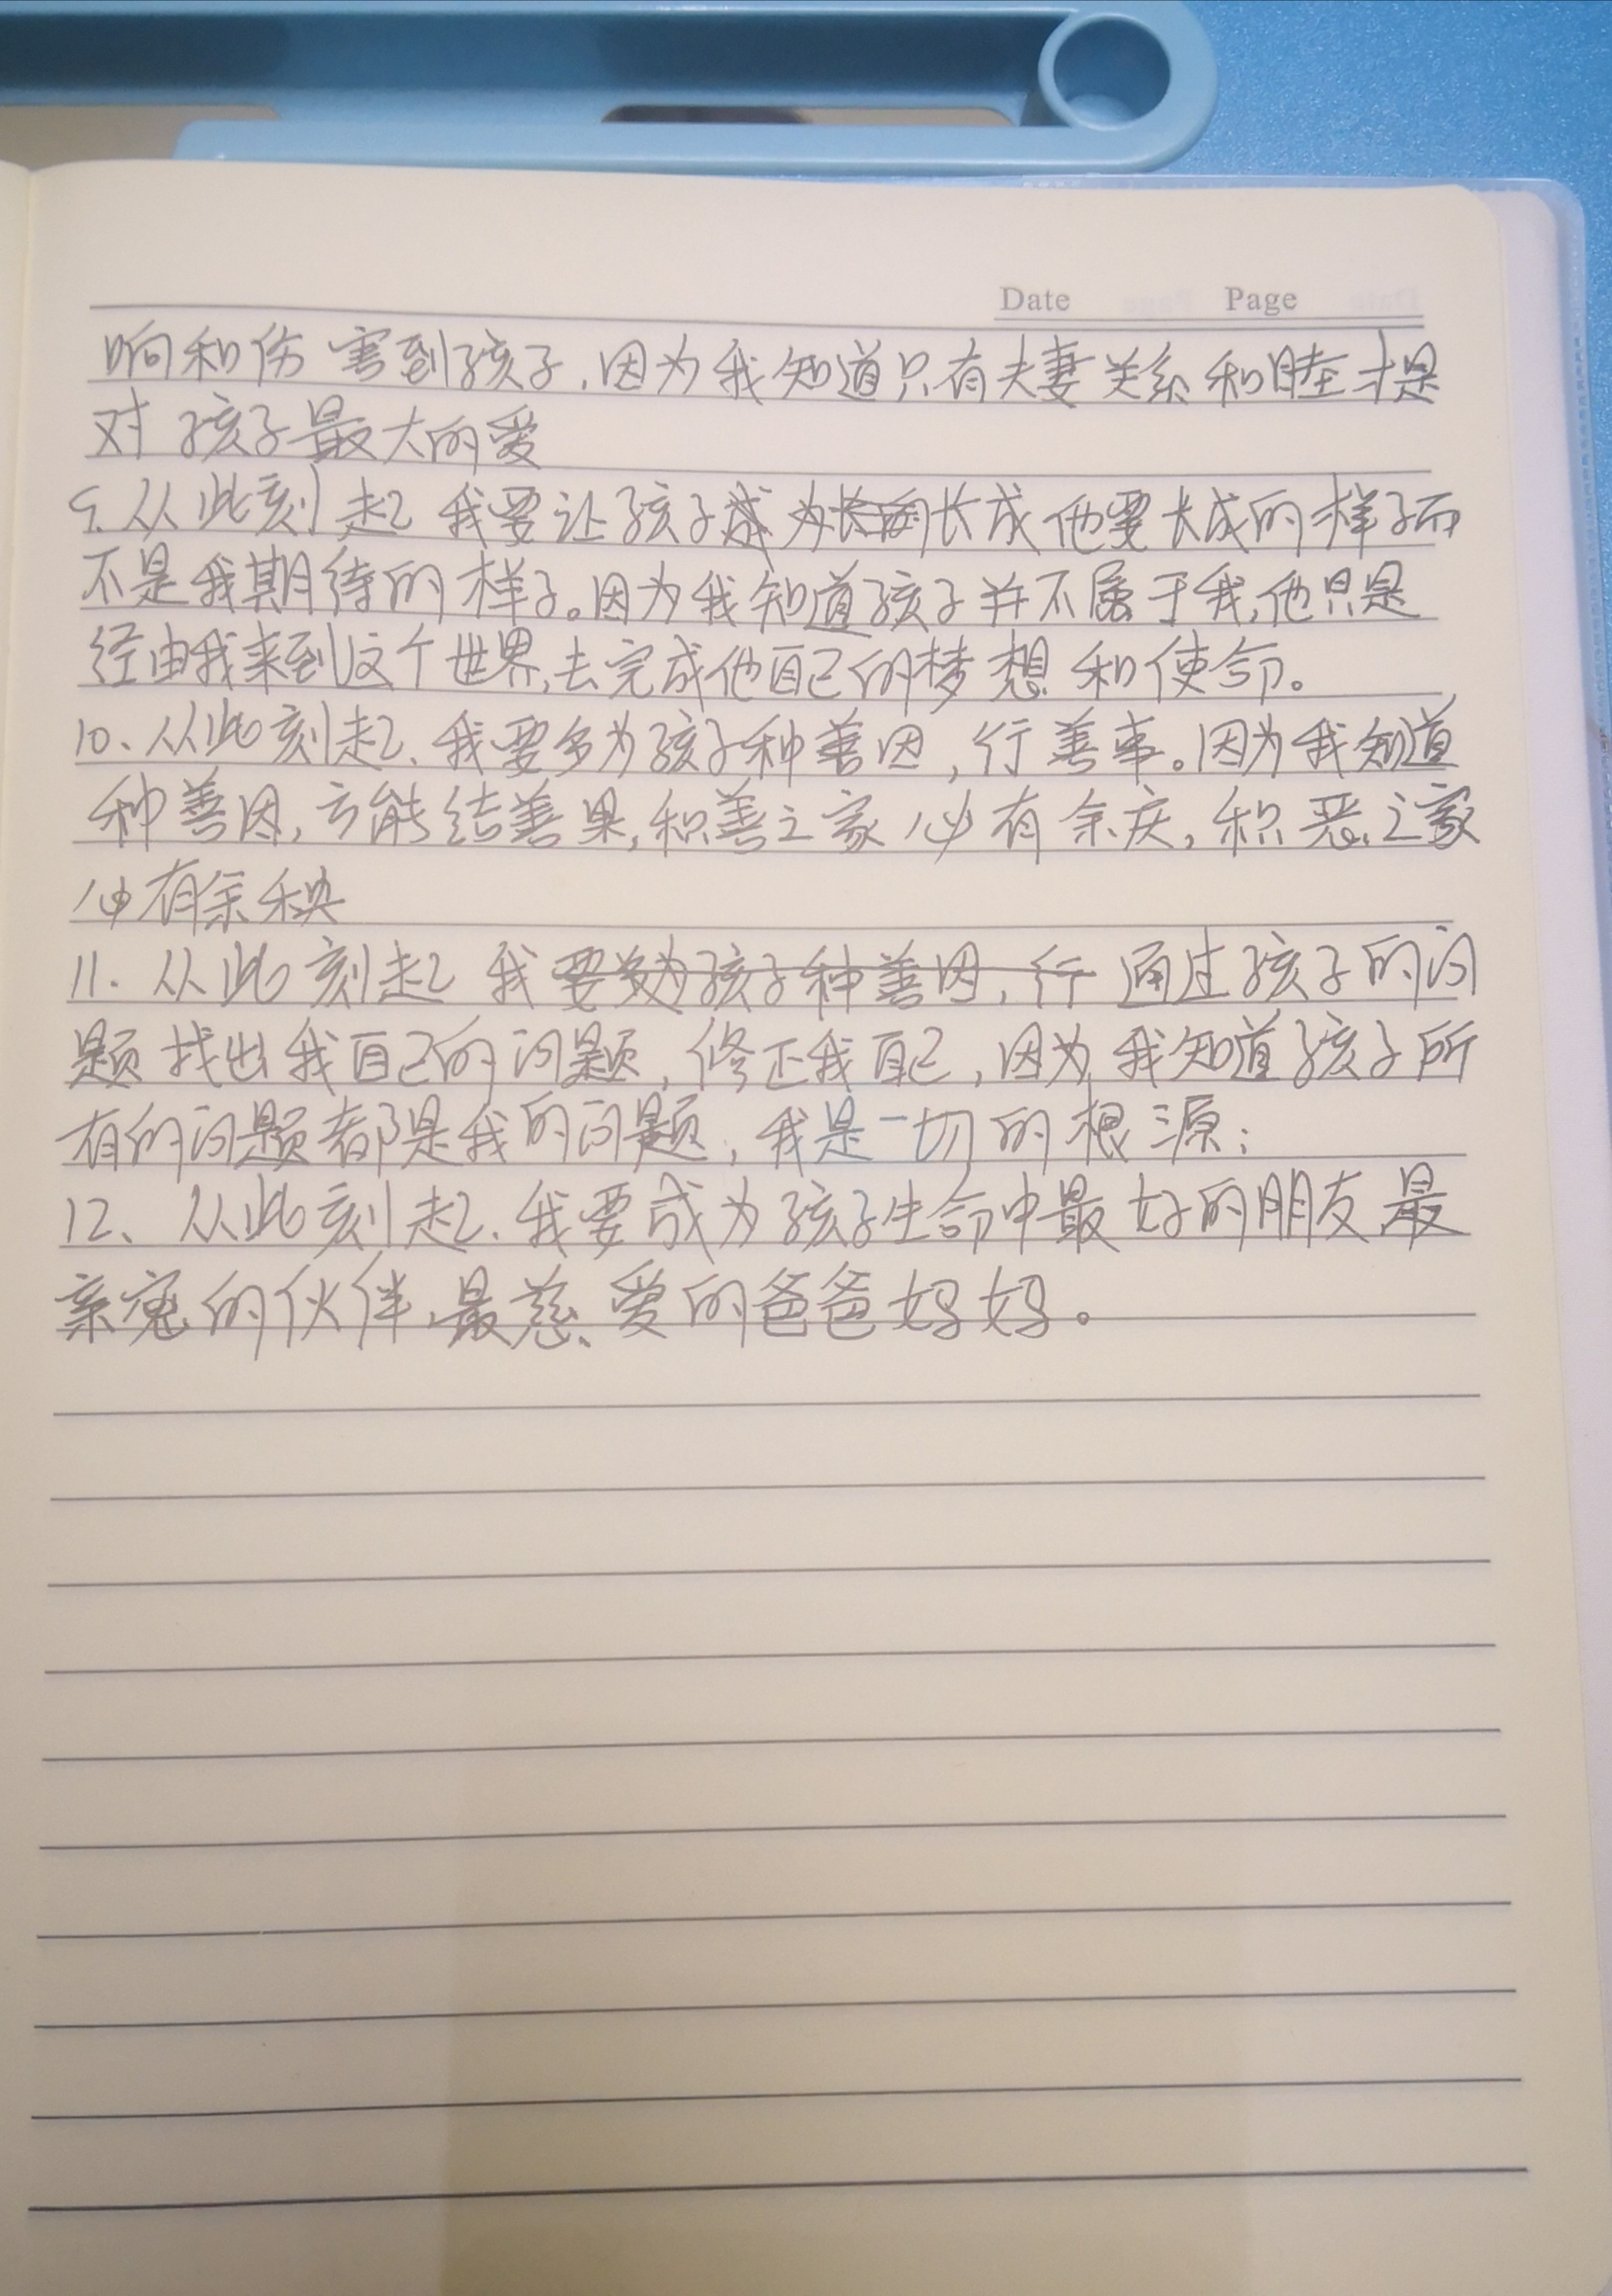 Date Page
响和伤害到孩子,因为我知道只有夫妻关系和睦才是
对孩子最大的爱
9.从此刻起 我要让孩子成为长成他要长成的样子而
不是我期待的样子。因为我知道孩子并不属于我,他只是
经由我来到这个世界,去完成他自己的梦想和使命。
10、从此刻起、我要多为孩子种善因,行善事。因为我知道
种善因,方能结善果,积善之家必有余庆,积恶之家
必有余秧
11.从此刻起 我要多为孩子种善因,行 通过孩子的问
题找出我自己的问题,修正我自己,因为我知道孩子所
有的问题都是我的问题,我是一切的根源;
12、从此刻起、我要成为孩子生命中最好的朋友最
亲寛的伙伴、最慈爱的爸爸妈妈。